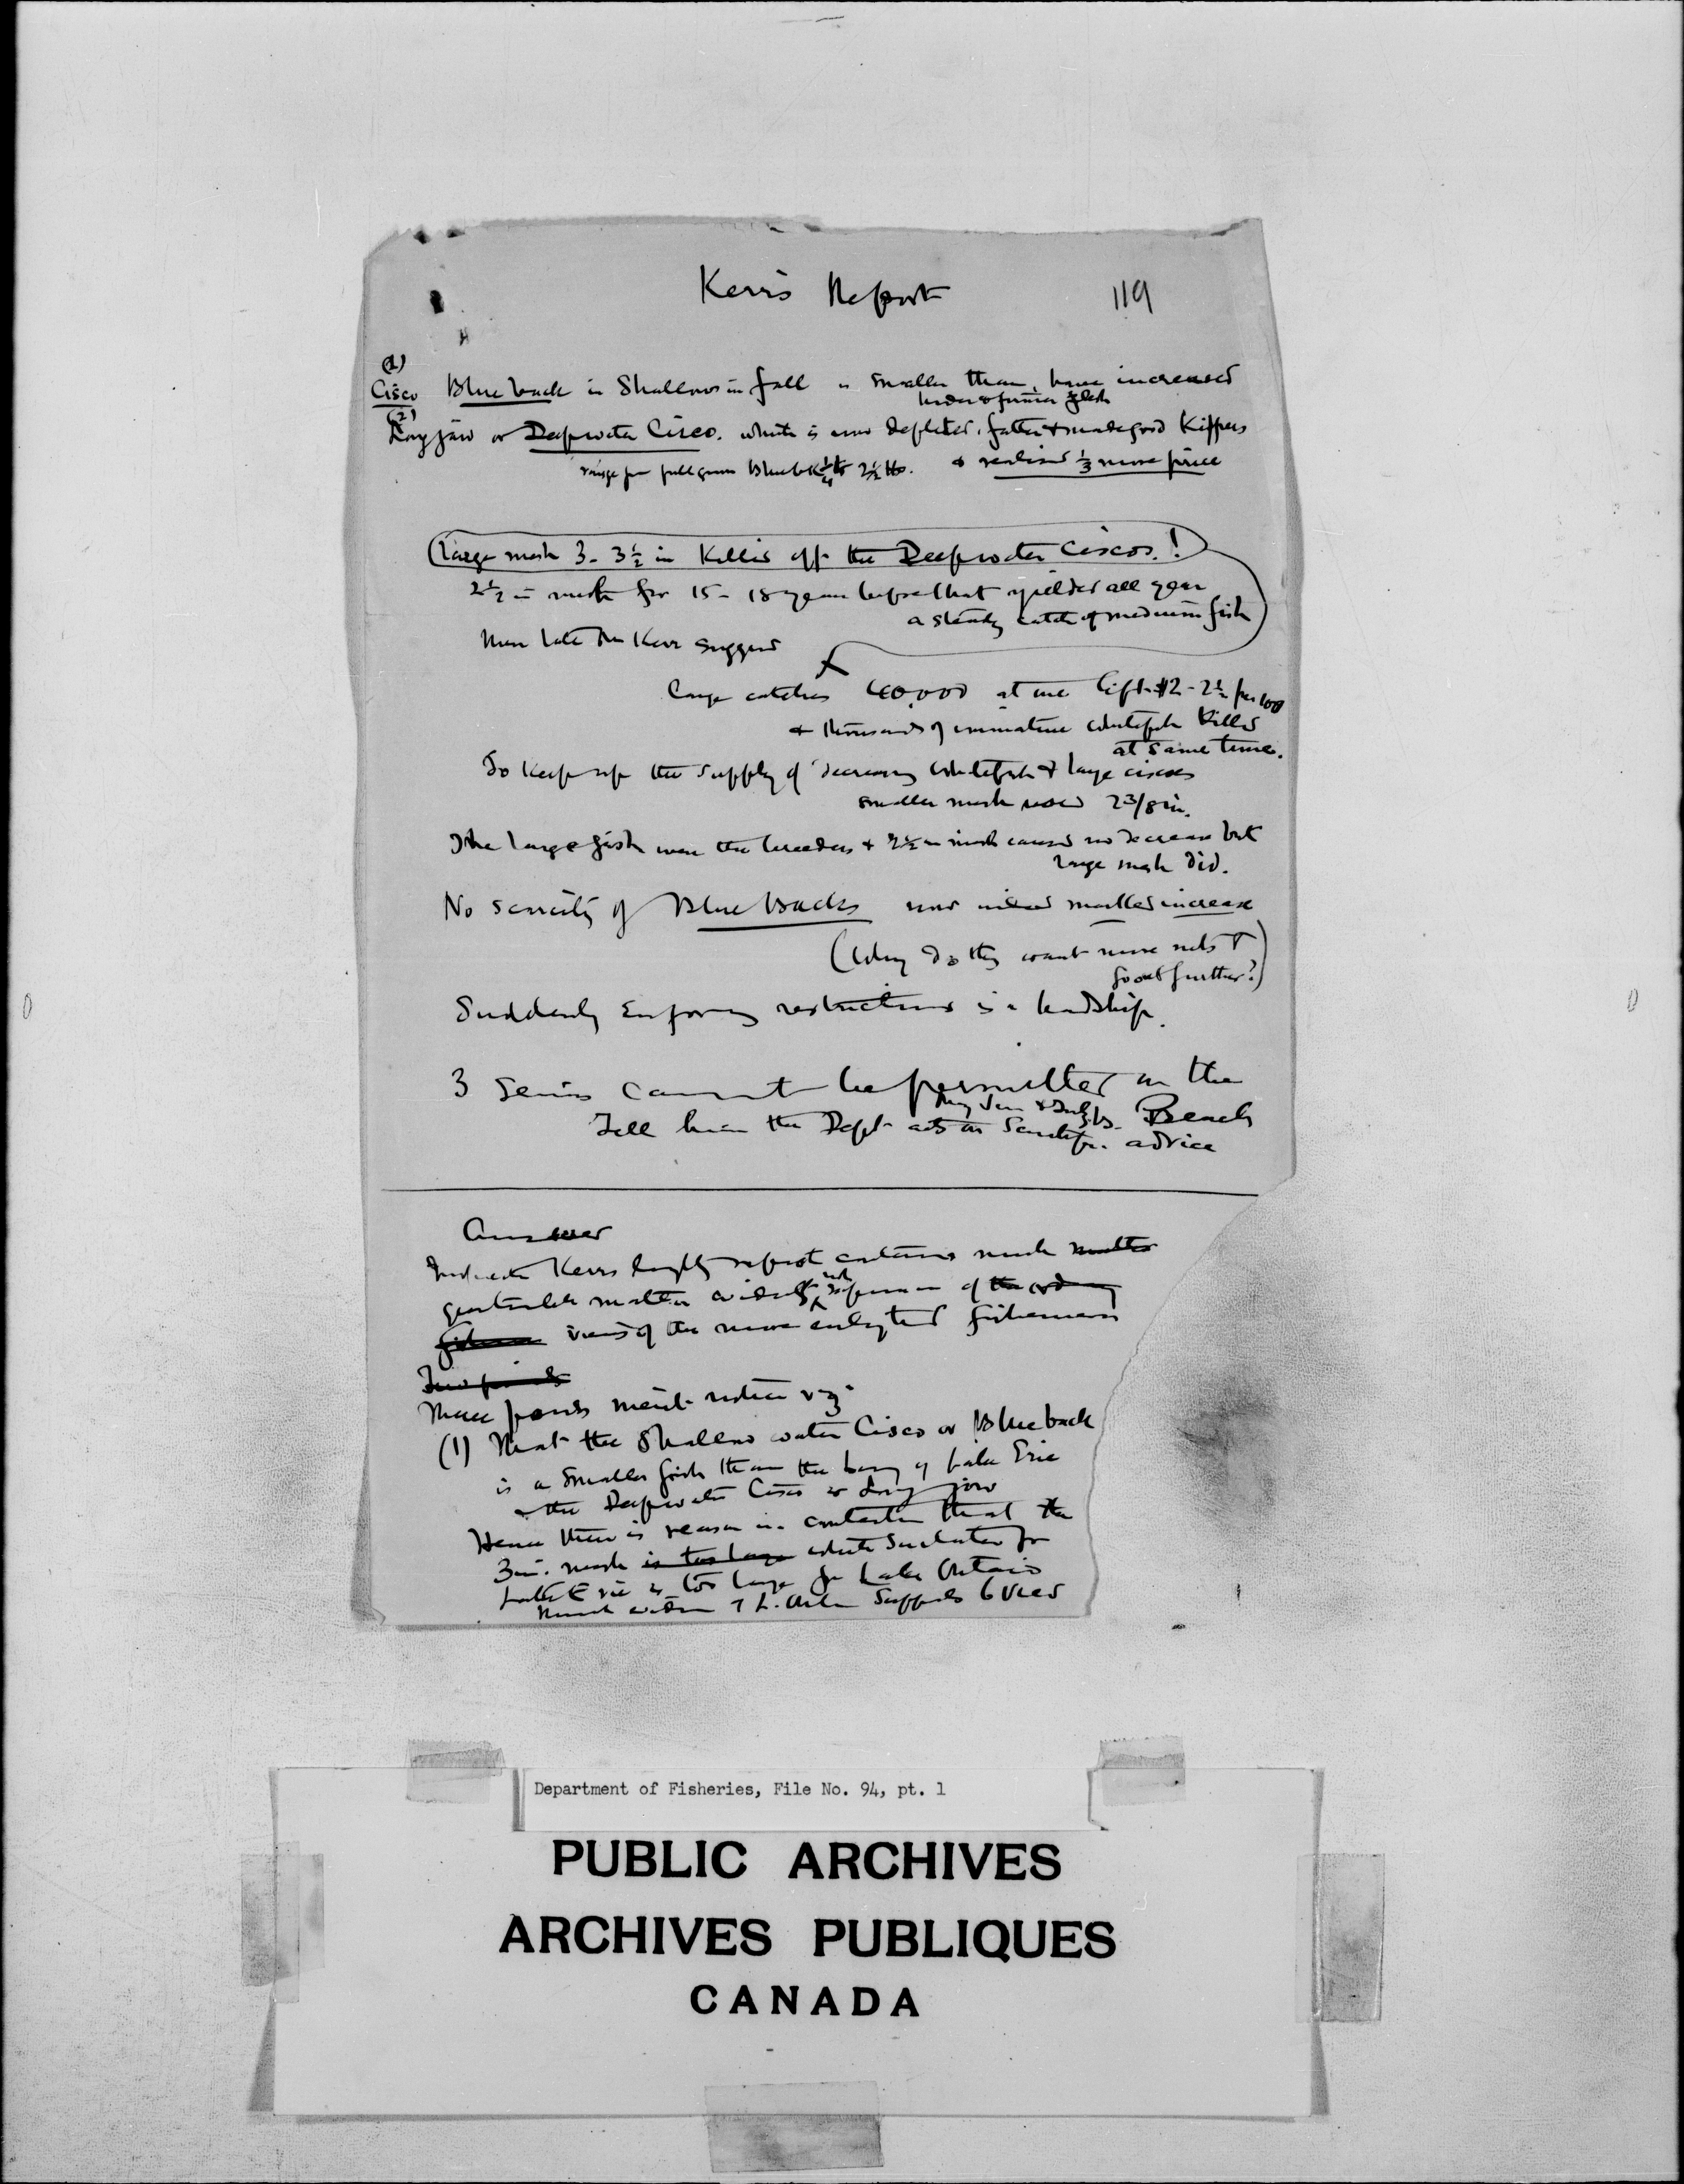 Kerr's Report 119
(1)
Cisco Blue back in Shallows in fall is smaller than, have increased
harder & firmer flesh
(2)
Long jaw or Deepwater Cisco. which is now depleted, fatter & made good Kippers
range for full grown Blueback 1/4 to 2 1/2 lbs. & realised 1/3 more price
Large mesh 3 - 3 1/2 in Killed off the Deepwater Ciscos.!
2 1/2 in mesh for 15 - 18 years before that yielded all year
a steady catch of medium fish
late Kerr
Large catches 40,000 at one lift $2 - 2 1/2 per 100
& thousands of immature whitefish Killed
at same time.
To Keep up the supply of decreasing Whitefish & large ciscoes
smaller mesh used 2 3/8 in.
The large fish were the breeders & 2 1/2 in mesh caused no decrease but
large mesh did.
No scarcity of Blue backs now indeed marked increase
(Why do they want more nets &
go out further?)
Suddenly Enforcing restrictions is a hardship.
3 Seines cannot be permitted on the
Beach
Tell him the Dept acts on Scientific advice
Answer
Kerrs lengthy report contains much matter
matter of the
fishermen views of the more enlightened fishermen
Two points
Three points merit notice viz.
(1) That the Shallow water Cisco or Blueback
is a smaller fish than the of Lake Erie
& the Deepwater Cisco or Long jaw
Hence there is reason in contention that the
3 in. mesh is too large which for
Lake Erie is too large for Lake Ontario
Department of Fisheries, File No. 94, pt. 1
PUBLIC ARCHIVES
ARCHIVES PUBLIQUES
CANADA